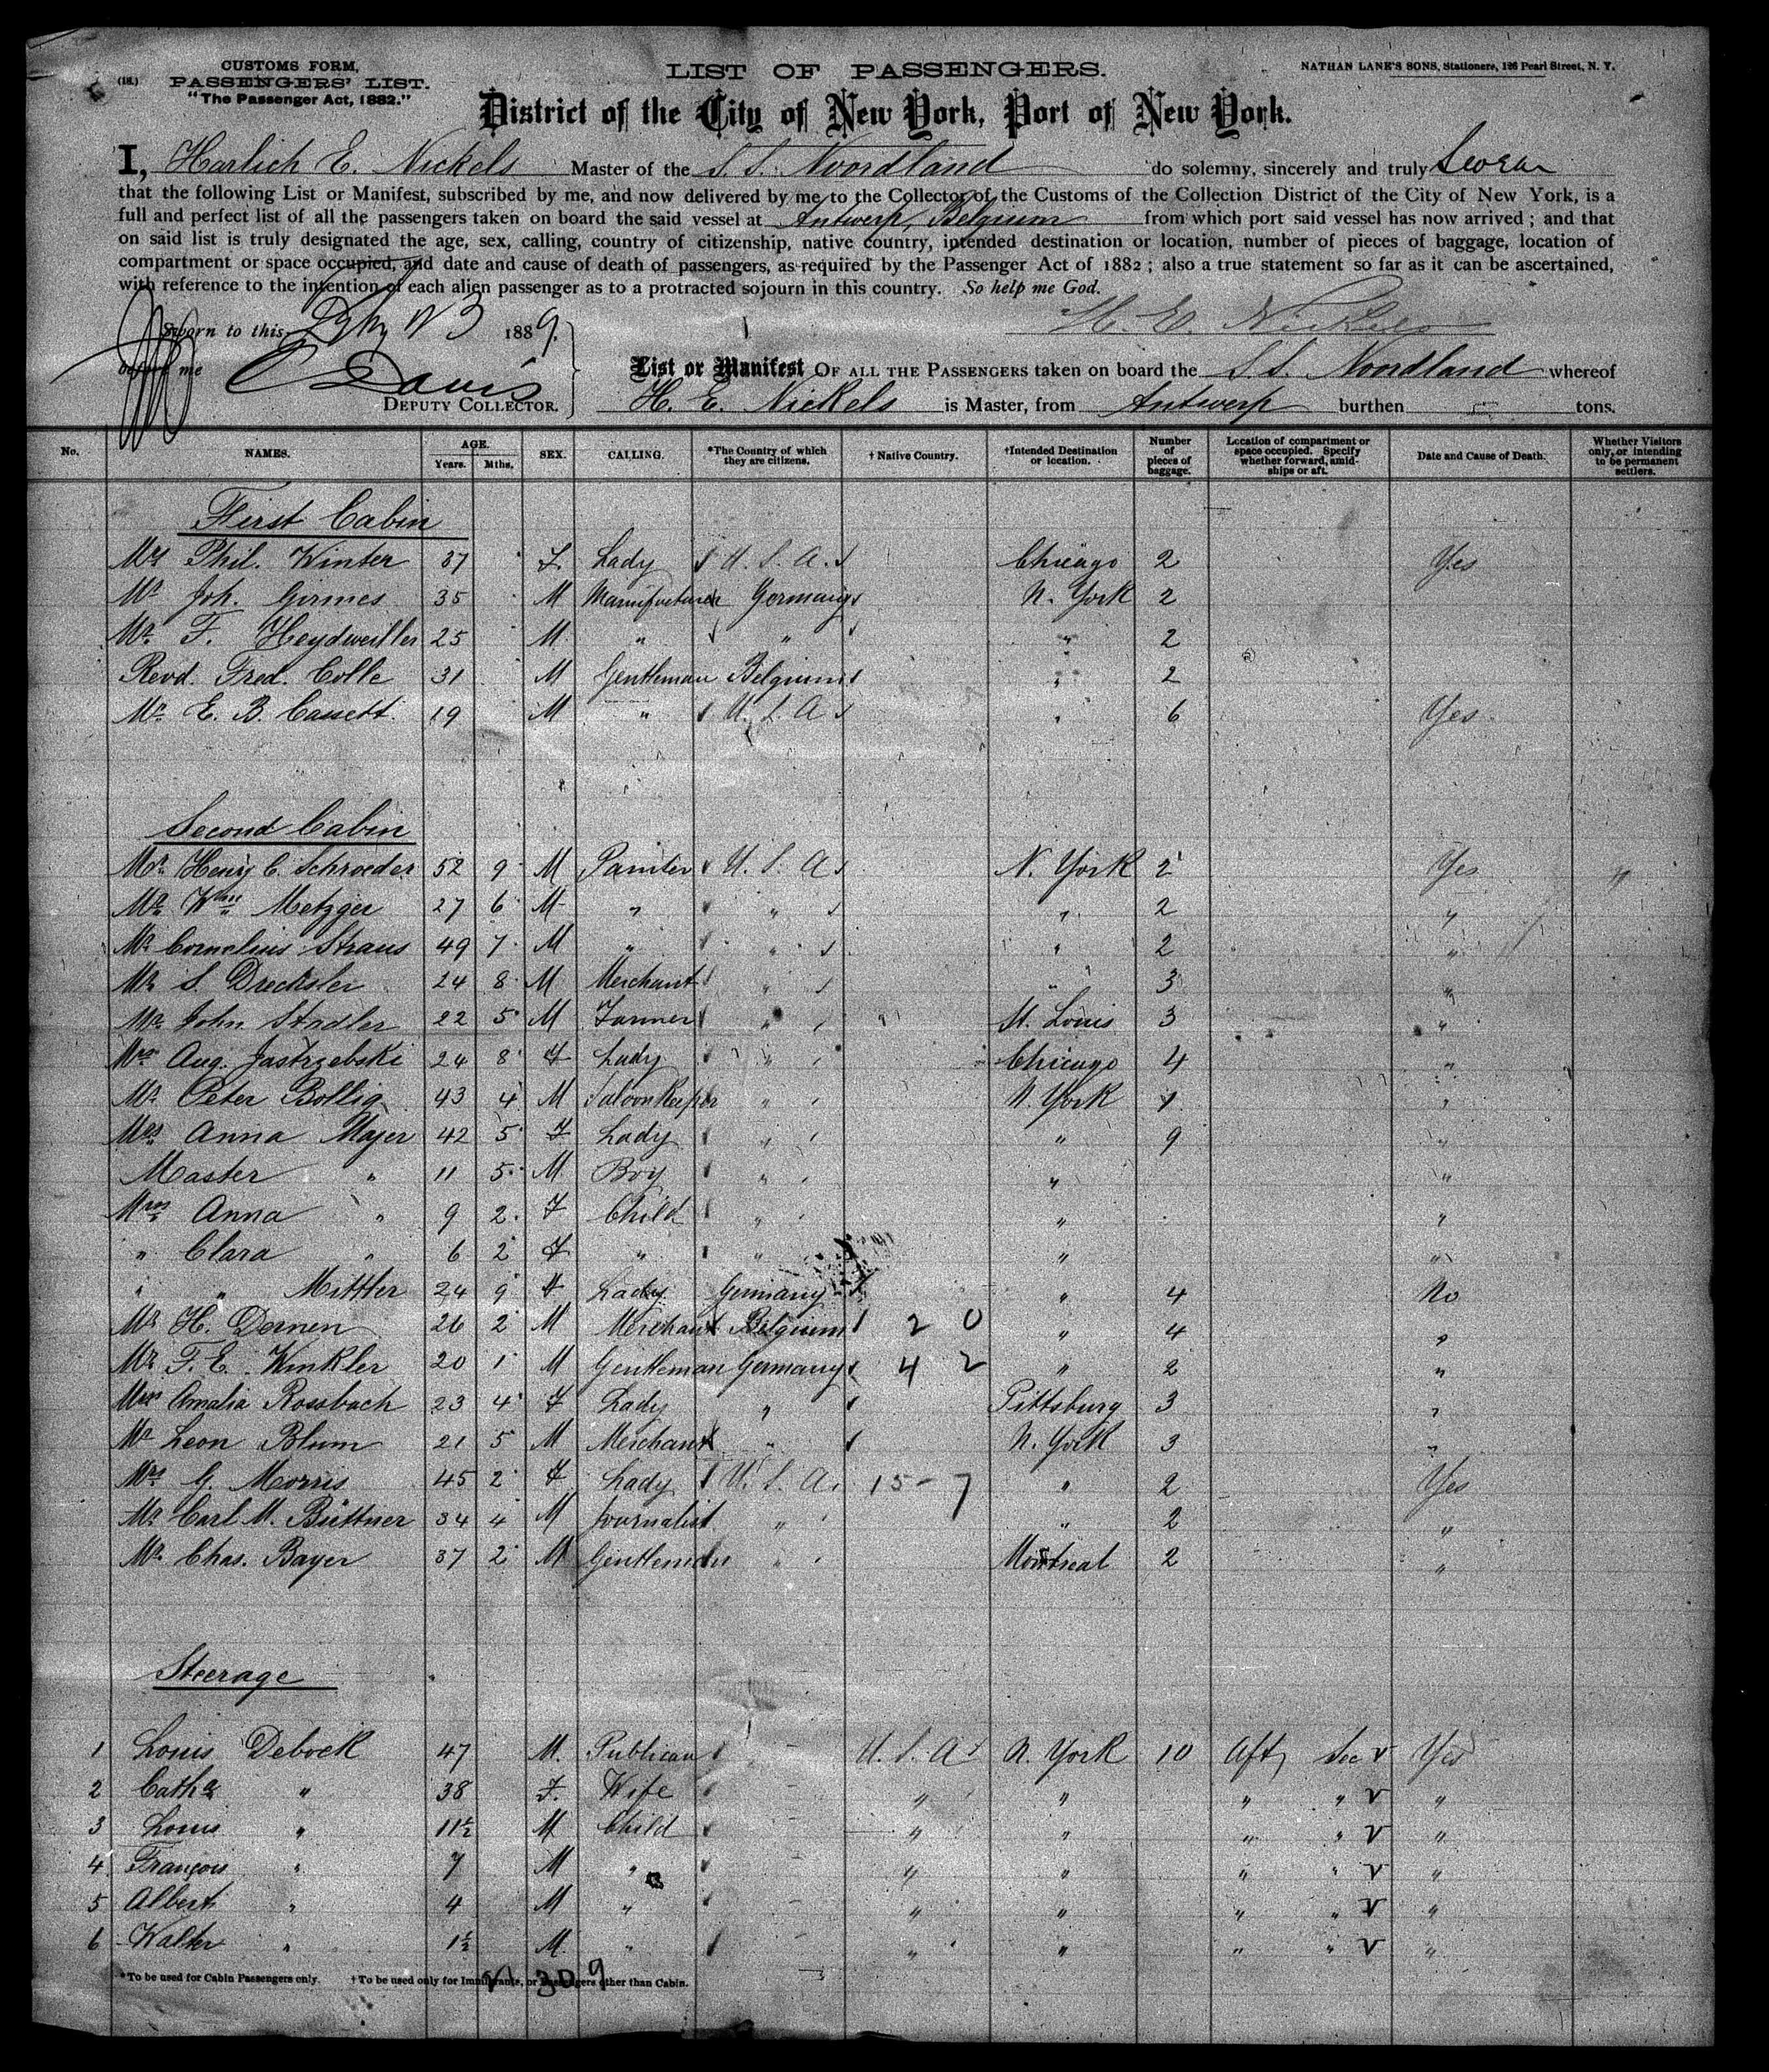 (18.)
CUSTOMS FORM,
PASSENGERS' LIST.
"The Passenger Act, 1882."
LIST OF PASSENGERS.
NATHAN LANE'S SONS, Stationers, 126 Pearl Street, N. Y.
District of the City of New York, Port of New York.
I, Harlich E. Nickels Master of the S. S. Noordland do solemny, sincerely and truly swear
that the following List or Manifest, subscribed by me, and now delivered by me to the Collector of the Customs of the Collection District of the City of New York, is a
full and perfect list of all the passengers taken on board the said vessel at Antwerp, Belgium from which port said vessel has now arrived; and that
on said list is truly designated the age, sex, calling, country of citizenship, native country, intended destination or location, number of pieces of baggage, location of
compartment or space occupied, and date and cause of death of passengers, as required by the Passenger Act of 1882; also a true statement so far as it can be ascertained,
with reference to the intention of each alien passenger as to a protracted sojourn in this country. So help me God.
Sworn to this 1889. H. E. Nickels
before me
C Davis
DEPUTY COLLECTOR.
List or Manifest OF ALL THE PASSENGERS taken on board the S. S. Noordland whereof
H. E. Nickels is Master, from Antwerp burthen tons.
No. NAMES. AGE. Years. Mths. SEX. CALLING. *The Country of which they are citizens. † Native Country. †Intended Destination or location. Number of pieces of baggage. Location of compartment or space occupied. Specify whether forward, amidships or aft. Date and Cause of Death. Whether Visitors only, or intending to be permanent settlers.
First Cabin
Mrs Phil. Winter 37 F. Lady U. S. A. Chicago 2 Yes
Mr Joh. Girmes 35 M Manufacturer Germany N. York 2
Mr F. Heydweiller 25 M " " " 2
Revd. Fred. Colle 31 M Gentleman Belgium " 2
Mr E. B. Cassett 19 M " U. S. A. " 6 Yes
Second Cabin
Mr Henry C. Schroeder 52 9 M Painter U. S. A. N. York 2 Yes
Mr Wm Metzger 27 6 M " " " 2 "
Mr Cornelius Straus 49 7 M " " " 2 "
Mr S. Drecksler 24 8 M Merchant " " 3 "
Mr John Stadler 22 5 M Farmer " St. Louis 3 "
Mrs Aug. Jastrzebski 24 8 F Lady " Chicago 4 "
Mr Peter Bollig 43 4 M Saloonkeeper " N. York 1 "
Mrs Anna Majer 42 5 F Lady " " 9 "
Master " 11 5 M Boy " " "
Mrss Anna " 9 2 F Child " " "
" Clara " 6 2 F " " " "
" " Mittler 24 9 F Lady Germany " 4 No
Mr H. Dernen 26 2 M Merchant Belgium 2 0 " 4 "
Mr F. E. Winkler 20 1 M Gentleman Germany 4 2 " 2 "
Miss Amalia Rossbach 23 4 F Lady " Pittsburg 3 "
Mr Leon Blum 21 5 M Merchant " N. York 3 "
Mrs G. Morris 45 2 F Lady U. S. A. 15 - 7 " 2 Yes
Mr Carl M. Büttner 34 4 M Journalist " " 2 "
Mr Chas. Bayer 37 2 M Gentleman " Montreal 2 "
Steerage
1 Louis Debock 47 M. Publican U. S. A. N. York 10 Aft Sec V Yes
2 Catha " 38 F. Wife " " " " V "
3 Louis " 11½ M Child " " " " V "
4 François " 7 M " " " " " V "
5 Albert " 4 M " " " " " V "
6 Walter " 1½ M. " " " " " V "
*To be used for Cabin Passengers only. †To be used only for Immigrants, or Passengers other than Cabin.